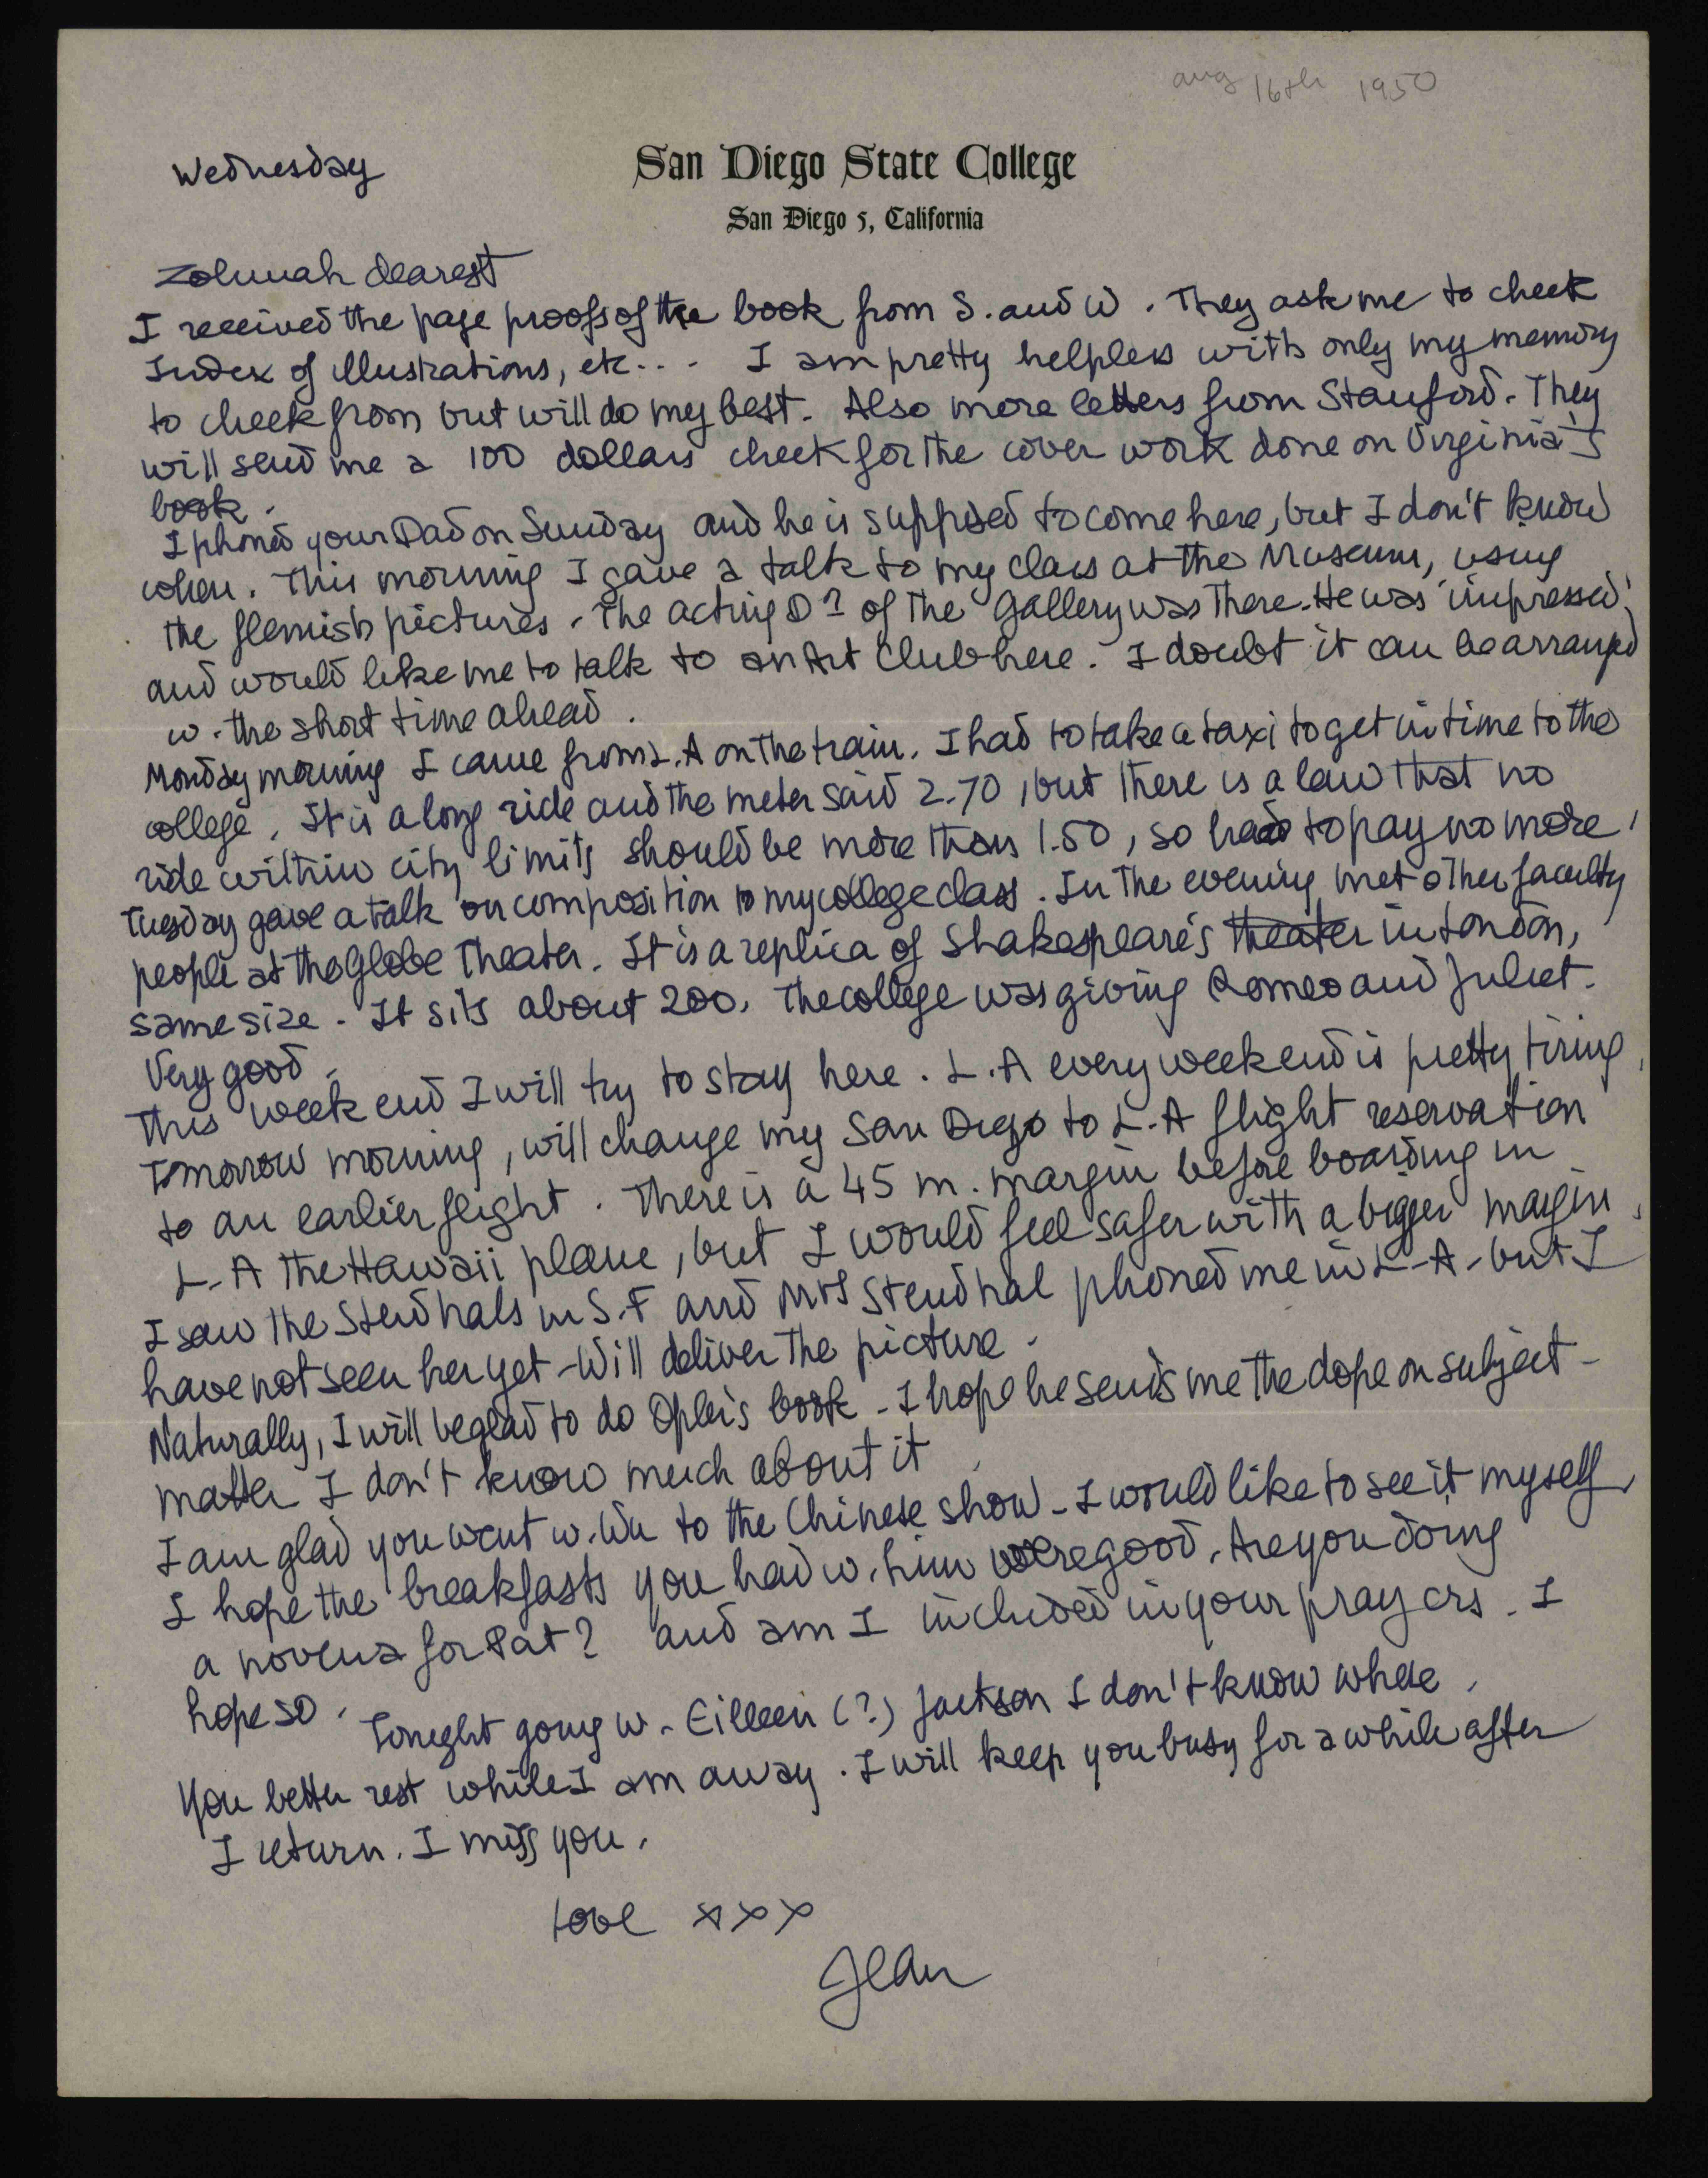 aug 16th 1950
Wednesday
San Diego State College
San Diego 5, California
Zohmah dearest
I received the page proofs of the book from S. and W. They ask me to check
Index of illustrations, etc... I am pretty helpless with only my memory
to check from but will do my best. Also more letters from Stanford. They
will send me a 100 dollars check for the cover work done on Virginia's
book.
I phoned your Dad on Sunday and he is supposed to come here, but I don't know
when. This morning I gave a talk to my class at the Museum, using
the flemish pictures. The acting D? of the Gallery was there. He was 'impressed'
and would like me to talk to an Art Club here. I doubt it can be arranged
w. the short time ahead.
Monday morning I came from L.A on the train. I had to take a taxi to get in time to the
college. It is a long ride and the meter said 2.70, but there is a law that no
ride within city limits should be more than 1.50, so had to pay no more.
Tuesday gave a talk on composition to my college class. In the evening met other faculty
people at the Globe Theater. It is a replica of Shakespeare's theater in London,
same size. It sits about 200. The college was giving Romeo and Juliet.
Very good.
This week end I will try to stay here. L.A every week end is pretty tiring.
Tomorrow morning, will change my San Diego to L.A flight reservation
to an earlier flight. There is a 45 m. margin before boarding in
L.A the Hawaii plane, but I would feel safer with a bigger margin.
I saw the Stendhals in S.F and Mrs Stendhal phoned me in L-A- but I
have not seen her yet - Will deliver the picture.
Naturally, I will be glad to do Opler's book - I hope he sends me the dope on subject-
matter I don't know much about it.
I am glad you went w. Wu to the Chinese show - I would like to see it myself
I hope the breakfasts you had w. him were good. Are you doing
a novena for Pat? and am I included in your prayers. I
hope so. Tonight going w. Eilleen (?) Jackson I don't know where.
You better rest while I am away. I will keep you busy for a while after
I return. I miss you.
Love xxx
Jean